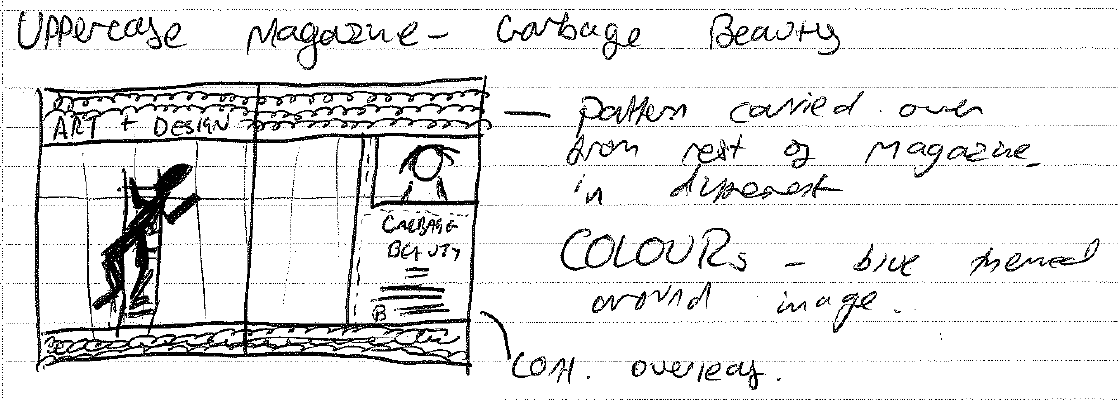 Uppercase Magazine - Garbage Beauty
ART + DESIGN
GARBAGE
BEAUTY
B
pattern carried over
from rest of Magazine
in different
COLOURs - blue themed
around image.
cont. overleaf.